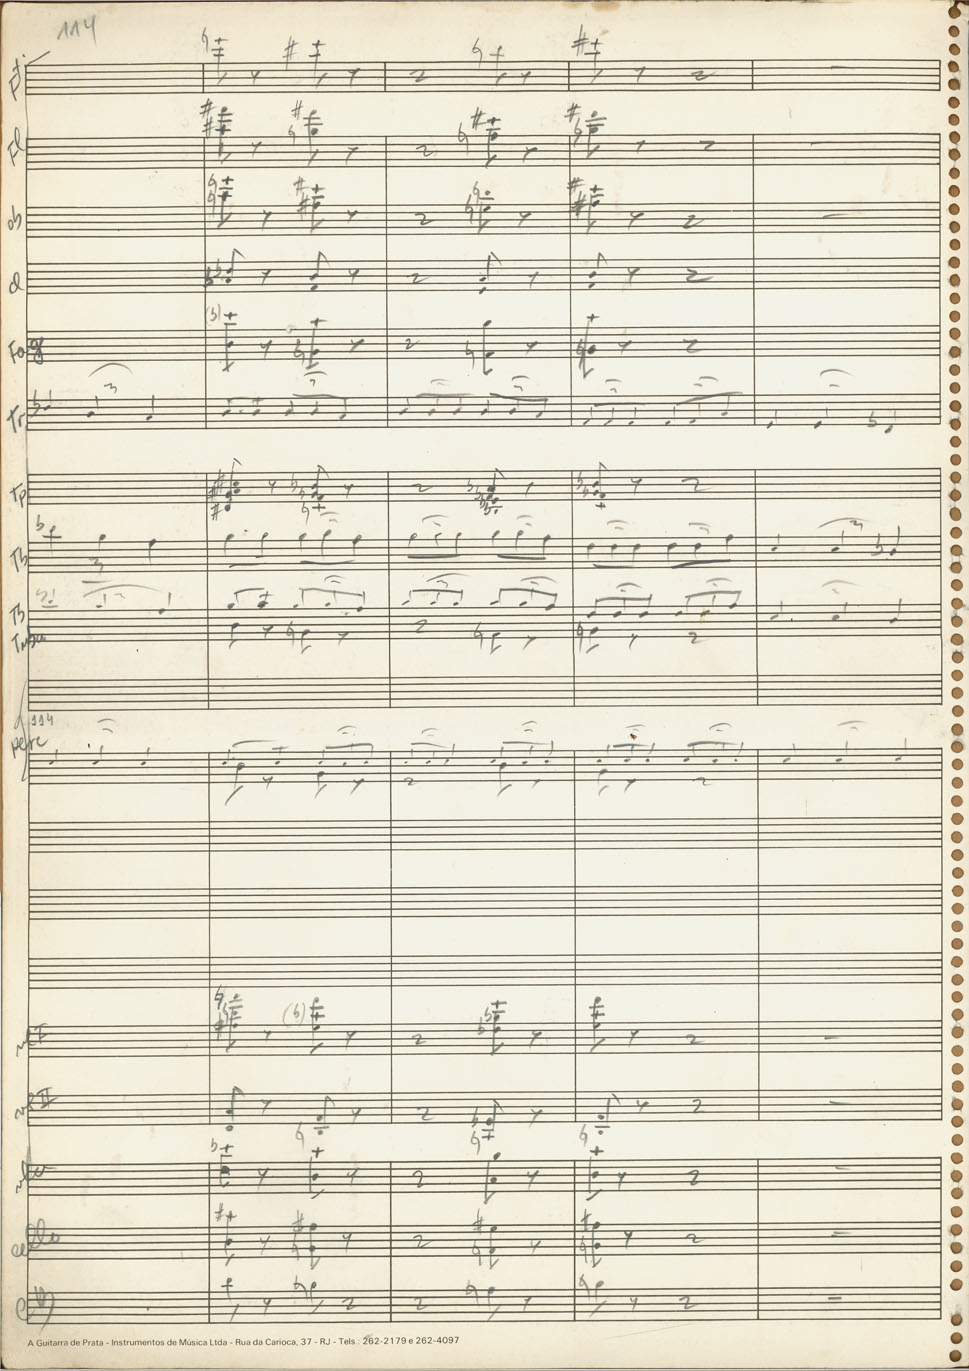 114
Ft.
Fl
ob
cl
Fag
Tr
Tp
Tb
Tb
Tuba
114
perc
vl I
vl II
vla
cello
cb
A Guitarra de Prata - Instrumentos de Música Ltda - Rua da Carioca, 37 - RJ - Tels.: 262-2179 e 262-4097